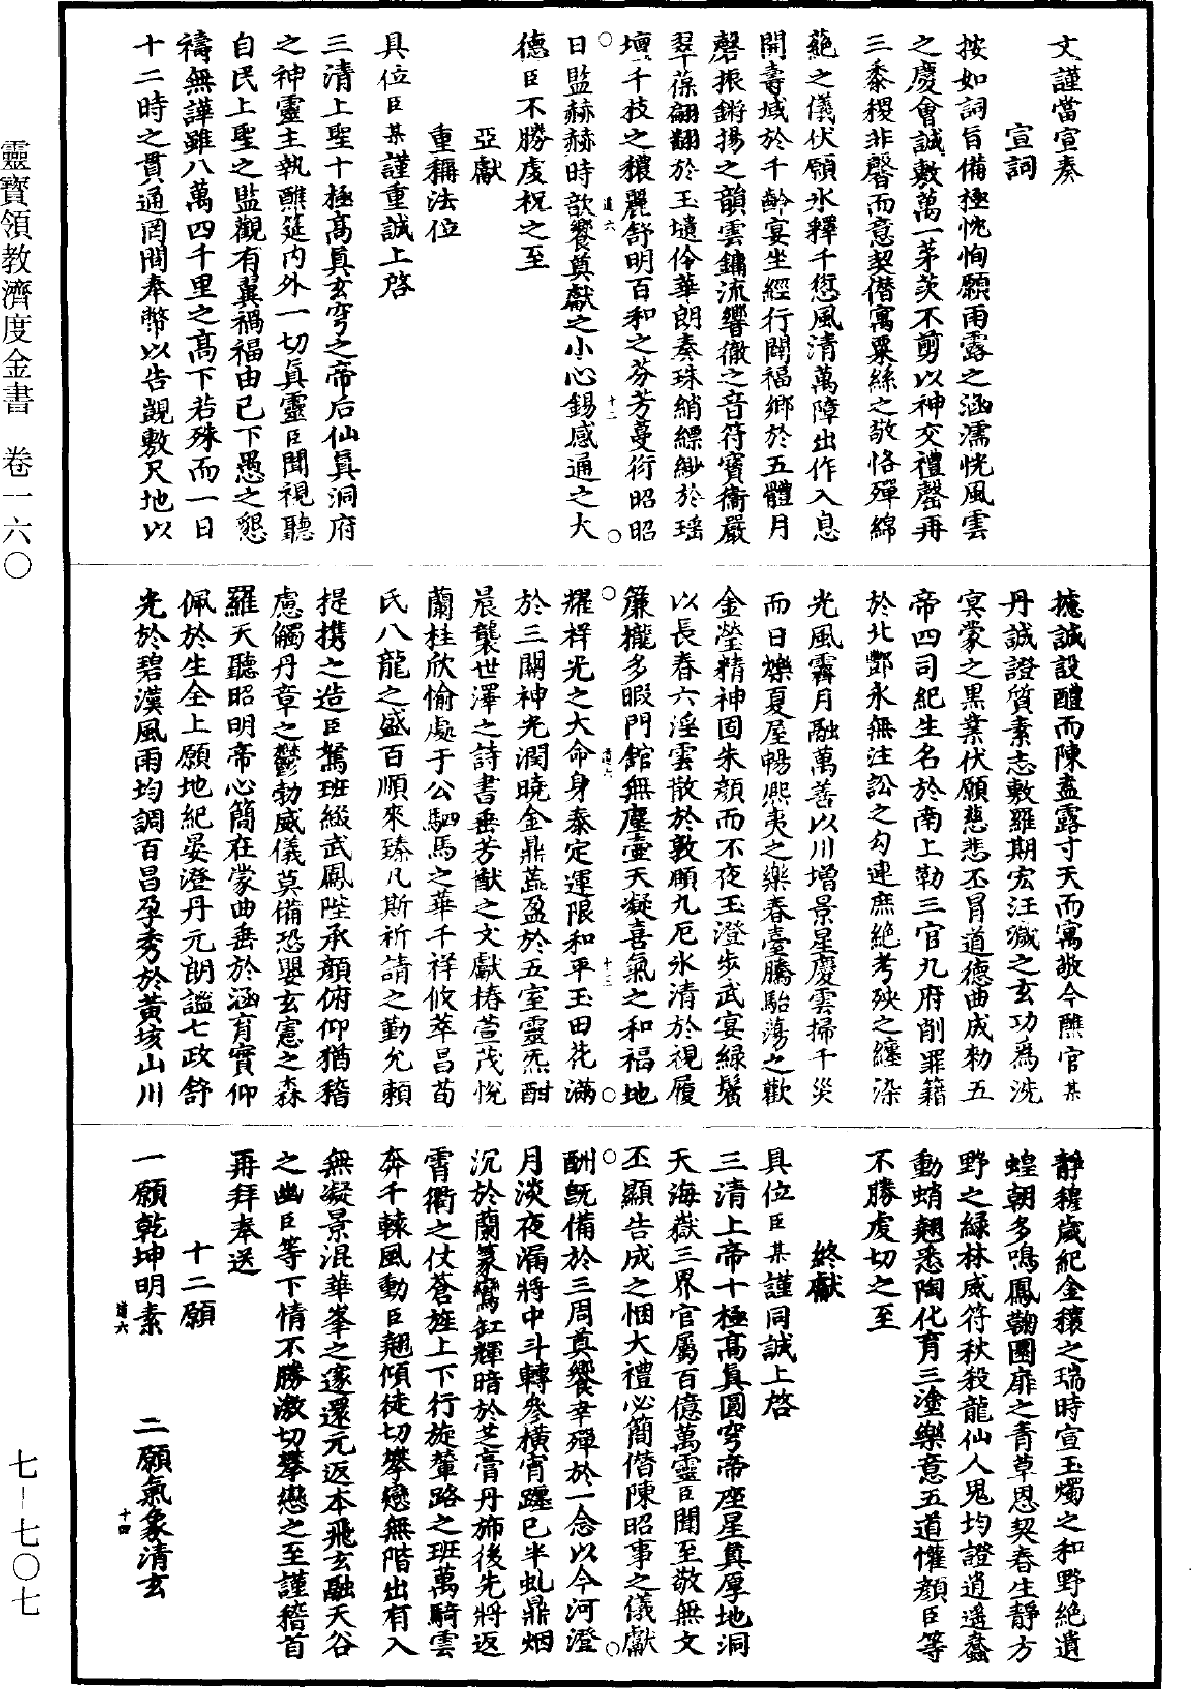 靈寶領教濟度金書 卷一六〇
七－七〇七
文謹當宣奏
宣詞
按如詞旨備極悃恂願雨露之涵濡恍風雲
之慶會誠敷萬一茅茨不剪以神交禮罄再
三黍稷非馨而意契僭寓粟絲之敬恪殫綿
蕝之儀伏願氷釋千愆風清萬障出作入息
開壽域於千齡宴坐經行闢福鄉於五體月
磬振鏘揚之韻雲鏞流響徹之音符寶衞嚴
翠葆翩翻於玉墀伶華朗奏珠綃縹緲於瑤
壇千技之穠麗舒明百和之芬芳蔓衍昭昭
日監赫赫時歆饗奠獻之小心錫感通之大
德臣不勝虔祝之至
亞獻
重稱法位
具位臣某謹重誠上啓
三清上聖十極高眞玄穹之帝后仙眞洞府
之神靈主執醮筵內外一切眞靈臣聞視聽
自民上聖之監觀有翼禍福由已下愚之懇
禱無譁雖八萬四千里之高下若殊而一日
十二時之貫通罔間奉幣以告覬敷尺地以
攄誠設醴而陳盍露寸天而寓敬今醮官某
丹誠證質素志敷羅期宏汪濊之玄功爲洗
冥蒙之黑業伏願慈悲丕冒道德曲成勑五
帝四司紀生名於南上勒三官九府削罪籍
於北酆永無注訟之勾連庶絶考殃之纏染
光風霽月融萬善以川增景星慶雲掃千災
而日爍夏屋暢熙夷之樂春臺騰駘蕩之歡
金瑩精神固朱顏而不夜玉澄步武宴綠鬢
以長春六淫雲散於敦頤九厄氷清於視履
簾櫳多暇門館無塵壷天凝喜氣之和福地
耀祥光之大命身泰定運限和平玉田花滿
於三關神光潤曉金鼎蕋盈於五室靈炁酣
晨襲世澤之詩書垂芳猷之文獻椿萱茂悅
蘭桂欣愉處于公駟馬之華千祥攸萃昌荀
氏八龍之盛百順來臻凡斯祈請之勤允賴
提携之造臣駑班綴武鳳陛承顔俯仰猶稽
慮觸丹章之鬱勃威儀莫備恐嬰玄憲之森
羅天聽昭明帝心簡在蒙曲垂於涵育實仰
佩於生全上願地紀晏澄丹元朗謐七政舒
光於碧漢風雨均調百昌孕秀於黃垓山川
靜穆歲紀金穰之瑞時宣玉燭之和野絶遺
蝗朝多鳴鳳鞠圜扉之青草恩契春生靜方
野之綠林威符秋殺龍仙人鬼均證逍遙蠢
動蛸翹悉陶化育三塗樂意五道懽顏臣等
不勝虔切之至
終獻
具位臣某謹同誠上啓
三清上帝十極高眞圓穹帝座星眞厚地洞
天海嶽三界官屬百億萬靈臣聞至敬無文
丕顯告成之悃大禮必簡僭陳昭事之儀獻
酬旣備於三周奠饗幸殫於一念以今河澄
月淡夜漏將中斗轉參橫宵躔已半虬鼎烟
沉於蘭篆鸞缸輝暗於芝膏丹斾後先將返
霄衢之仗蒼旌上下行旋輦路之班萬騎雲
奔千轅風動臣翹傾徒切攀戀無階出有入
無凝景混華峯之邃還元返本飛玄融天谷
之幽臣等下情不勝激切攀戀之至謹稽首
再拜奉送
十二願
一願乾坤明素 二願氣象清玄
道六 十二
道六 十三
道六 十四